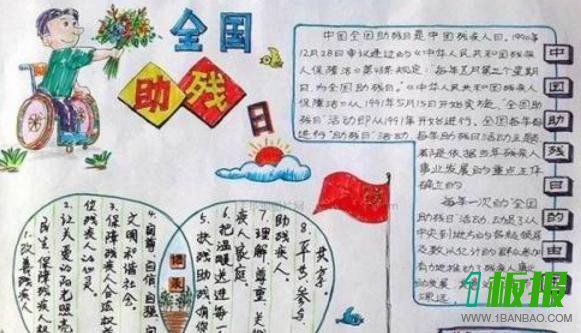 全国
助残日
中国助残日的由
中国全国助残日是中国残疾人日，1990年
12月28日审议通过的《中华人民共和国残疾
人保障法》第48条规定："每年五月第三个星期
日，为全国助残日。"《中华人民共和国残疾人
保障法》从1991年5月15日开始实施，"全国助
残日"活动即从1991年开始进行。全国每年都
进行"助残日"活动，每年助残日活动主题
都是依据当年残疾人
事业发展的重点工作
确立的
每年一次的"全国
助残日"活动，动员了从
中央到地方的各级领导
及数以亿计的群众参加
有力地推动了残疾人事业
的发展
1.改善残疾人
民生 保障残疾人权
2.让关爱的阳光照亮
残疾人的心灵
3.保障残疾人合法权
文明和谐社会
4.自尊 自信 自强 自
5.扶残助残 有你
6.把温暖送进每一
残疾人家庭
7.理解 尊重 关
助残疾人
8.平等 参与
共享
1板报
WWW.1BANBAO.COM